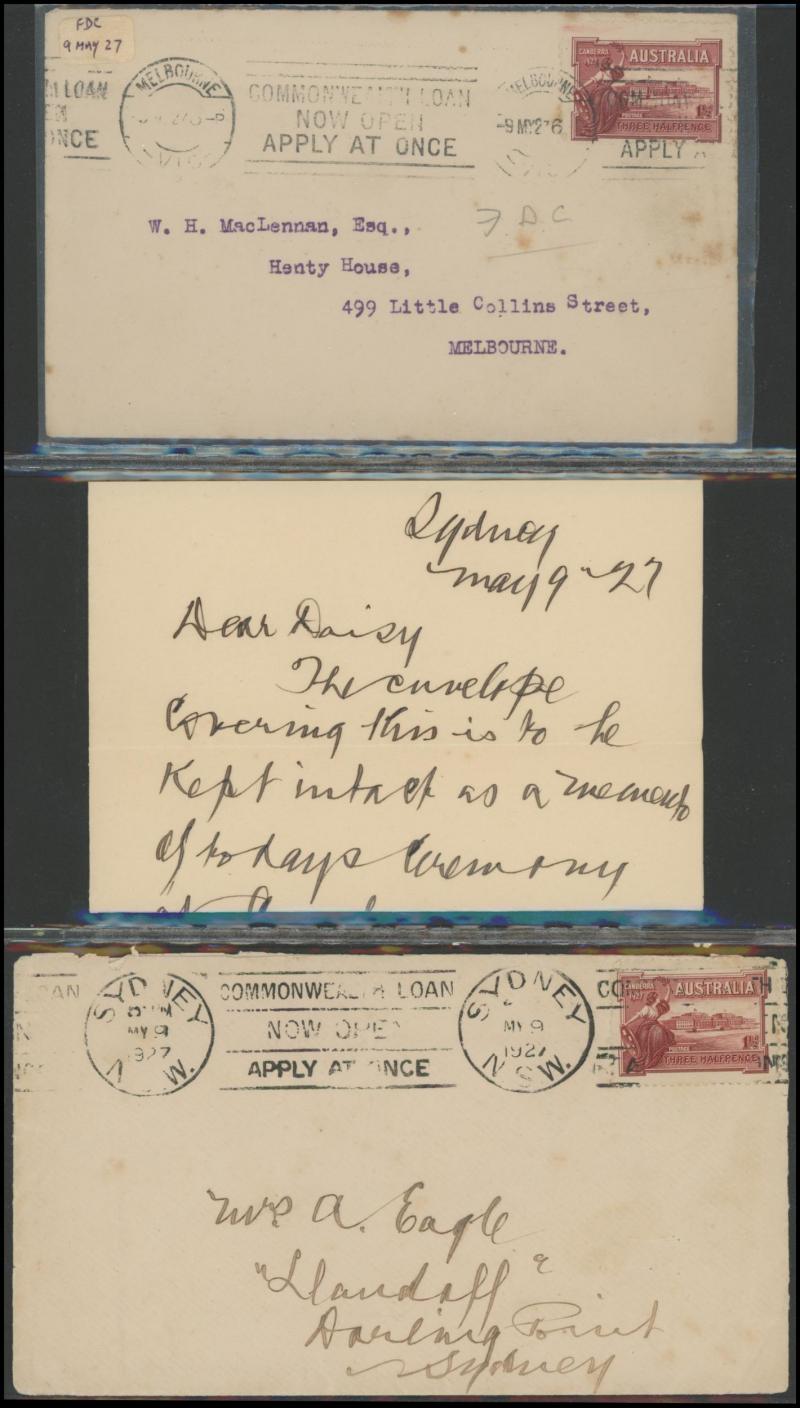 FDC
9 MAY 27
M LOAN
EN
ONCE
MELBOURNE
COMMONWEALTH LOAN
NOW OPEN
APPLY AT ONCE
MELBOURNE
-9MY27 6
CANBERRA
1927
AUSTRALIA
POSTAGE
1½
THREE HALFPENCE
APPLY A
W. H. MacLennan, Esq.,
FDC
Henty House,
499 Little Collins Street,
MELBOURNE.
Sydney
May 9 - 27
Dear Daisy
The envelope
Covering this is to be
Kept intact as a memento
of todays Ceremony
at
AN
SYDNEY
MY 9
1927
N W.
COMMONWEALTH LOAN
NOW OPEN
APPLY AT ONCE
SYDNEY
MY 9
1927
N.S.W.
CO TH
CANBERRA
1927
AUSTRALIA
POSTAGE
1½
THREE HALFPENCE
Mrs A. Eagle
"Llandaff"
Darling Point
Sydney